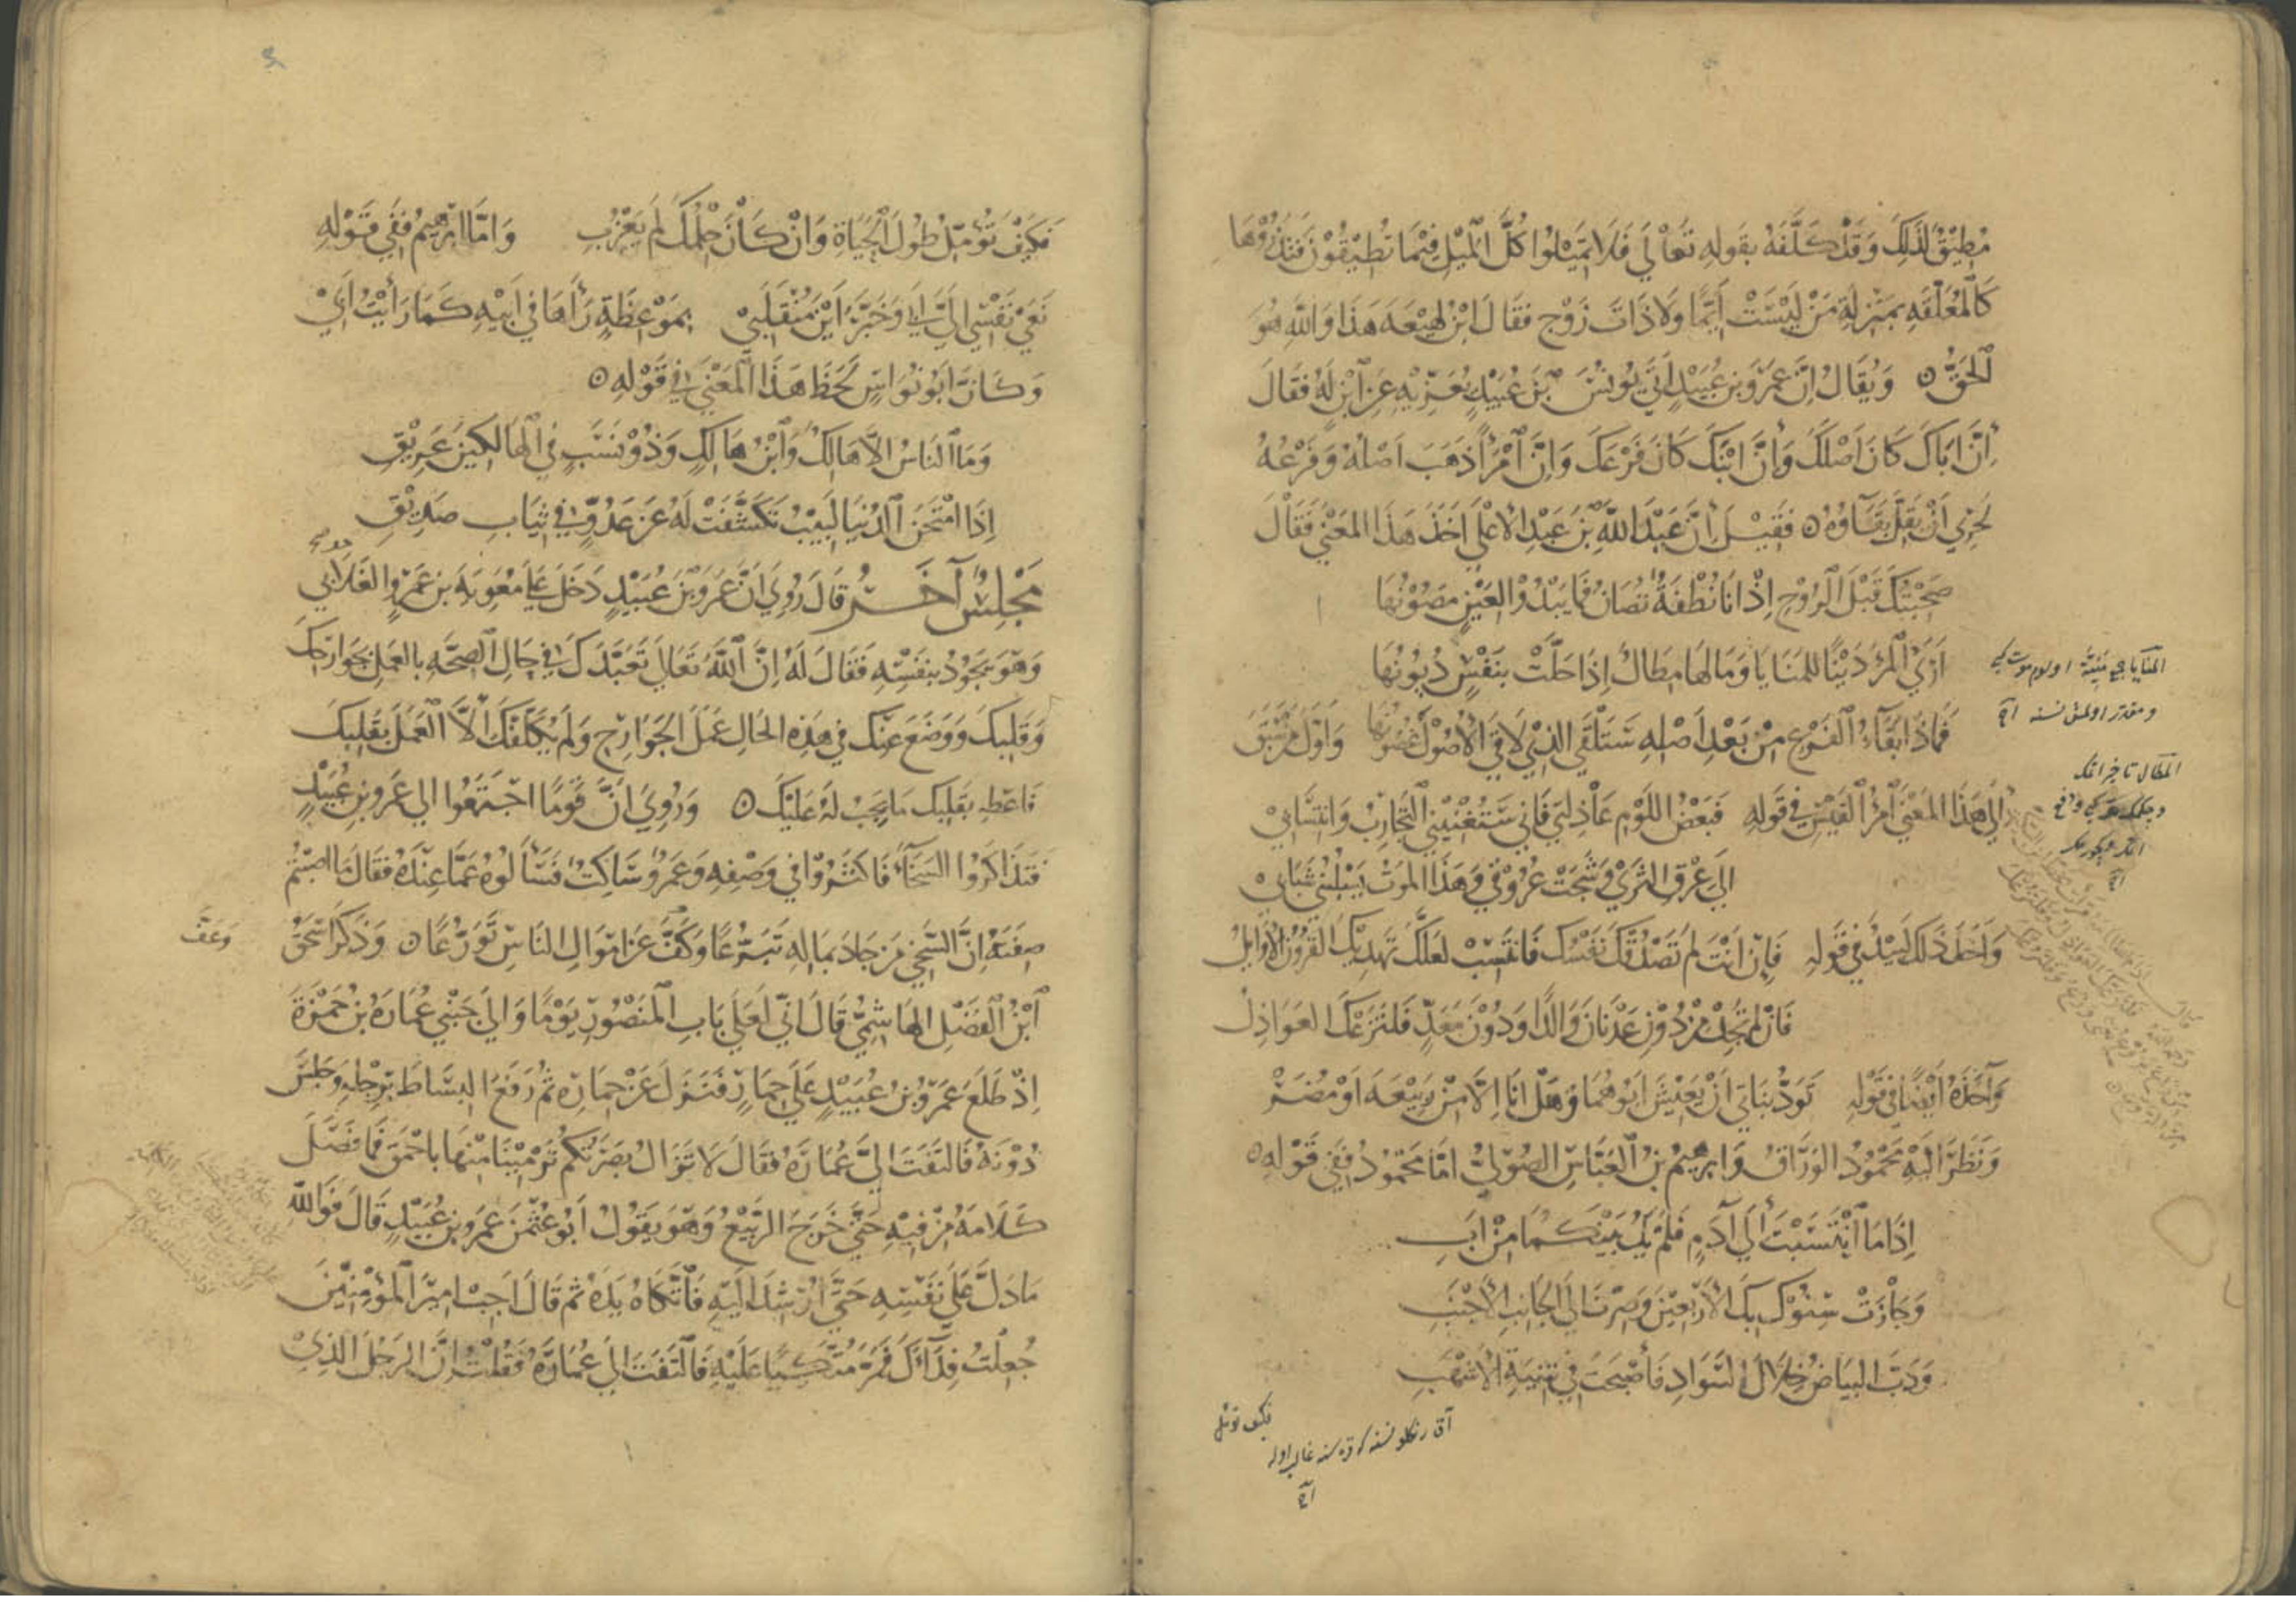 مُطِيْقٌ لذَلِكَ وَقَدْ كَلَّفَهُ بقَولِهِ تَعَالَى فَلَا تَمِيْلُوا كُلَّ الْمَيْلِ فِيْمَا تُطِيْقُوْنَ فَتَذَرُوْهَا
كَالْمُعَلَّقَهِ بمَنْزِلَةِ مَنْ لَيْسَتْ أَيِّمًا وَلَا ذَاتَ زَوْجٍ فقَالَ ابْنُ لَهِيْعَه هَذَا وَاللّٰهِ هُوَ
الْحَقُّ ٥ وَيُقَالُ اِنَّ عَمْرَو بن عُبَيْدٍ اَتَى يُونُسَ بْنَ عُبَيْدٍ يُعَزِّيْهِ عَنِ ابْنٍ لَهُ فَقَالَ
اِنَّ اَبَاكَ كَانَ اَصْلَكَ وَاِنَّ ابْنَكَ كَانَ فَرْعَكَ وَاِنَّ امْرَأً ذَهَبَ اَصْلُهُ وَفَرْعُهُ
لحَرِيٌ اَنْ يَقِلَّ بَقَاؤُهُ ٥ فَقِيْلَ اِنَّ عَبْدَ اللّٰهِ بْنَ عَبْدِ الاَعْلَى اَخَذَ هَذَا المَعْنَى فَقَالَ
صَحِبْتُكَ قَبْلَ الرُّوْحِ اِذْ اَنَا نُطْفَةٌ تُصَانُ فَمَا يَبْدُوْ لِعَيْنٍ مَصُوْنُهَا
اَرَى الْمَرْءَ دَيْنًا للمَنَايَا وَمَا لهَا مِطَالٌ اِذَا حَلَّتْ بنَفْسٍ دُيُونُهَا
فَمَاذَا بَقَاءُ الْفَرْعِ مِنْ بَعْدِ اَصْلِهِ سَتَلْقَى الذِيْ لَاقَى الْاُصُوْلَ غُصُوْنُهَا وَاَوَّلُ مَنْ سَبَقَ
اِلَى هَذَا المَعْنَى امْرُؤُ القَيْسِ فِي قَوْلِهِ فَبَعْضُ اللَّوْمِ عَاذِلَتِيْ فَاِنِّي سَتُغْنِيْنِي التَّجَارِبُ وَانْتِسَابِيْ
اِلَى عِرْقِ الثَّرَى وَشَجَتْ عُرُوْقِي وَهَذَا المَوْتُ يَسْلُبُنِي شَبَابِيْ
وَاَخَذَ ذَلِكَ لَبِيْدٌ فِي قَوْلِهِ فَاِنْ اَنْتَ لَمْ تَصْدُقْكَ نَفْسُكَ فَانْتَسِبْ لَعَلَّكَ تَهْدِيْكَ القُرُوْنُ الْاَوَايِلُ
فَاِنْ لَمْ تَجِدْ مِنْ دُوْنِ عَدْنَانَ وَالدًا وَدُوْنَ مَعَدٍّ فَلتَزَعْكَ العَوَاذِلُ
وَاَخَذَهُ اَيْضًا فِي قَوْلِهِ تَوَدُّ ابْنَتَايَ اَنْ يَعِيْشَ اَبُوْهُمَا وَهَلْ اَنَا اِلَّا مِنْ رَبِيْعَةَ اَوْ مُضَرْ
وَنَظَرَ اِلَيْهِ مَحْمُوْدُ الوَرَّاقُ وَاِبْرَهِيْمُ بْنُ الْعَبَّاسِ الصُّوْلِيُّ اَمَّا مَحْمُوْدٌ فَفِي قَوْلِهِ ٥
اِذَا مَا انْتَسَبْتَ اِلَى آدَمٍ فَلَمْ يَكُ بَيْنَكُمَا مِنْ اَبِ
وَجَازَتْ سِنُوْكَ بِكَ الْاَرْبَعِيْنَ وَصِرْتَ اِلَى الجَانِبِ الْاَجْنَبِ
وَدَبَّ البَيَاضُ خِلَالَ السَّوَادِ فَأَصْبَحْتَ فِي شِيَةِ الْاَشْهَبِ
فكيف تؤمل
فَكَيْفَ تُؤَمِّلُ طُولَ الْحَيَاةِ وَاِنْ كَانَ حِلْمُكَ لَمْ يَعْزُبِ وَاَمَّا اِبْرَهِيْمُ فَفِي قَوْلِهِ
نَعَى نَفْسِي اِلَيَّ اَبِي وَخَبَّرَ اَيْنَ مُنْقَلَبِيْ بِمَوْعِظَةٍ رَآهَا فِي اَبِيْهِ كَمَا رَأَيْتُ اَبِيْ
وَكَانَ اَبُو نُوَاسٍ لَحَظَ هَذَا الْمَعْنَى فِي قَوْلِهِ ٥
وَمَا النَّاسُ اِلَّا هَالِكٌ وَابْنُ هَالِكٍ وَذُوْ نَسَبٍ فِي الْهَالِكِيْنَ عَرِيْقِ
اِذَا امْتَحَنَ الدُّنْيَا لَبِيْبٌ تَكَشَّفَتْ لَهُ عَنْ عَدُوٍّ فِي ثِيَابِ صَدِيْقِ
مَجْلِسٌ آخَرُ قَالَ رُوِيَ اَنَّ عَمْرَو بْنَ عُبَيْدٍ دَخَلَ عَلَى مُعَوِيَةَ بن عَمْرٍو الغَلَابِي
وَهْوَ يَجُوْدُ بنَفْسِهِ فَقَالَ لَهُ اِنَّ اللّٰهَ تَعَالَى تَعَبَّدَكَ فِي حَالِ الصِّحَّهِ بالعَمَلِ بجَوَارِحِكَ
وَقَلبِكَ وَوَضَعَ عَنْكَ فِي هَذِهِ الحَالِ عَمَلَ الجَوَارِحِ وَلَمْ يُكَلِّفْكَ اِلَّا الْعَمَلَ بقَلبِكَ
فَاعْطِهِ بقَلبِكَ مَا يَجِبُ لَهُ عَلَيْكَ ٥ وَرُوِيَ اَنَّ قَوْمًا اجْتَمَعُوا اِلى عَمْرو بنِ عُبَيْدٍ
فَتَذَاكَرُوا السَّخَاءَ فَاكْثَرُوْا فِي وَصْفِهِ وَعَمْرٌو سَاكِتٌ فَسَأَلُوْهُ عَمَّا عِنْدَهُ فَقَالَ مَا اصَبْتُمْ
صِفَتَهُ اِنَّ السَّخِيَّ مَنْ جَادَ بمَالِهِ تَبَرُّعًا وَكَفَّ عَنْ اَمْوَالِ النَّاسِ تَوَرُّعًا ٥ وَذَكَرَ اِسْحَقُ
وَعَفَّ
ابْنُ الْفَضْلِ الهَاشِمِيُّ قَالَ اِنِّي لَعَلَى بَابِ الْمَنْصُوْرِ يَوْمًا وَالِى جَنْبِي عُمَارَةُ بْنُ حَمْزَةَ
اِذْ طَلَعَ عَمْرُو بْنُ عُبَيْدٍ عَلَى حِمَارٍ فَنَزَلَ عَنْ حِمَارِهِ ثُمَّ رَفَعَ البِسَاطَ بِرِجْلِهِ وَجَلَسَ
دُوْنَهُ فَالتَفَتَ اِلَيَّ عُمَارَةُ فَقَالَ لَا تَزَالُ بَصْرَتُكُمْ تَرْمِيْنَا مِنْهَا باَحْمَقَ فَمَا فَصَلَ
كَلَامَهُ مِنْ فِيْهِ حَتَّى خَرَجَ الرَّبِيْعُ وَهْوَ يَقُوْلُ اَبُو عُثْمَنَ عَمْرو بن عُبَيْدٍ قَالَ فَوَاللّٰهِ
مَا دَلَّ عَلَى نَفْسِهِ حَتَّى اُرْشِدَ اِلَيْهِ فَاتَّكَاهُ يَدَهُ ثُمَّ قَالَ اَجِبْ امِيْرَ الْمُؤْمِنِيْنَ
جُعِلْتُ فِدَاءَكَ فَمَرَّ مُتَّكِيًا عَلَيْهِ فَالْتَفَتُّ اِلَى عُمَارَةَ فَقُلْتُ اِنَّ الرَجُلَ الذِيْ